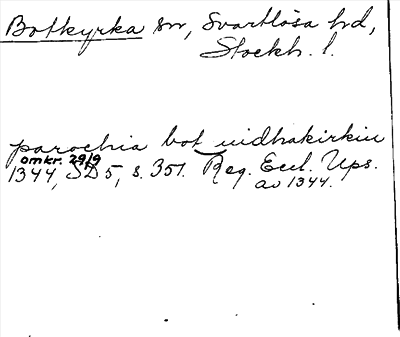 Botkyrka sn, Svartlösa hd,
Stockh. l.
parochia bot uidhakirkiu
omkr. 29/9
1344, SD 5, s. 357. Reg. Eccl. Ups.
av 1344.